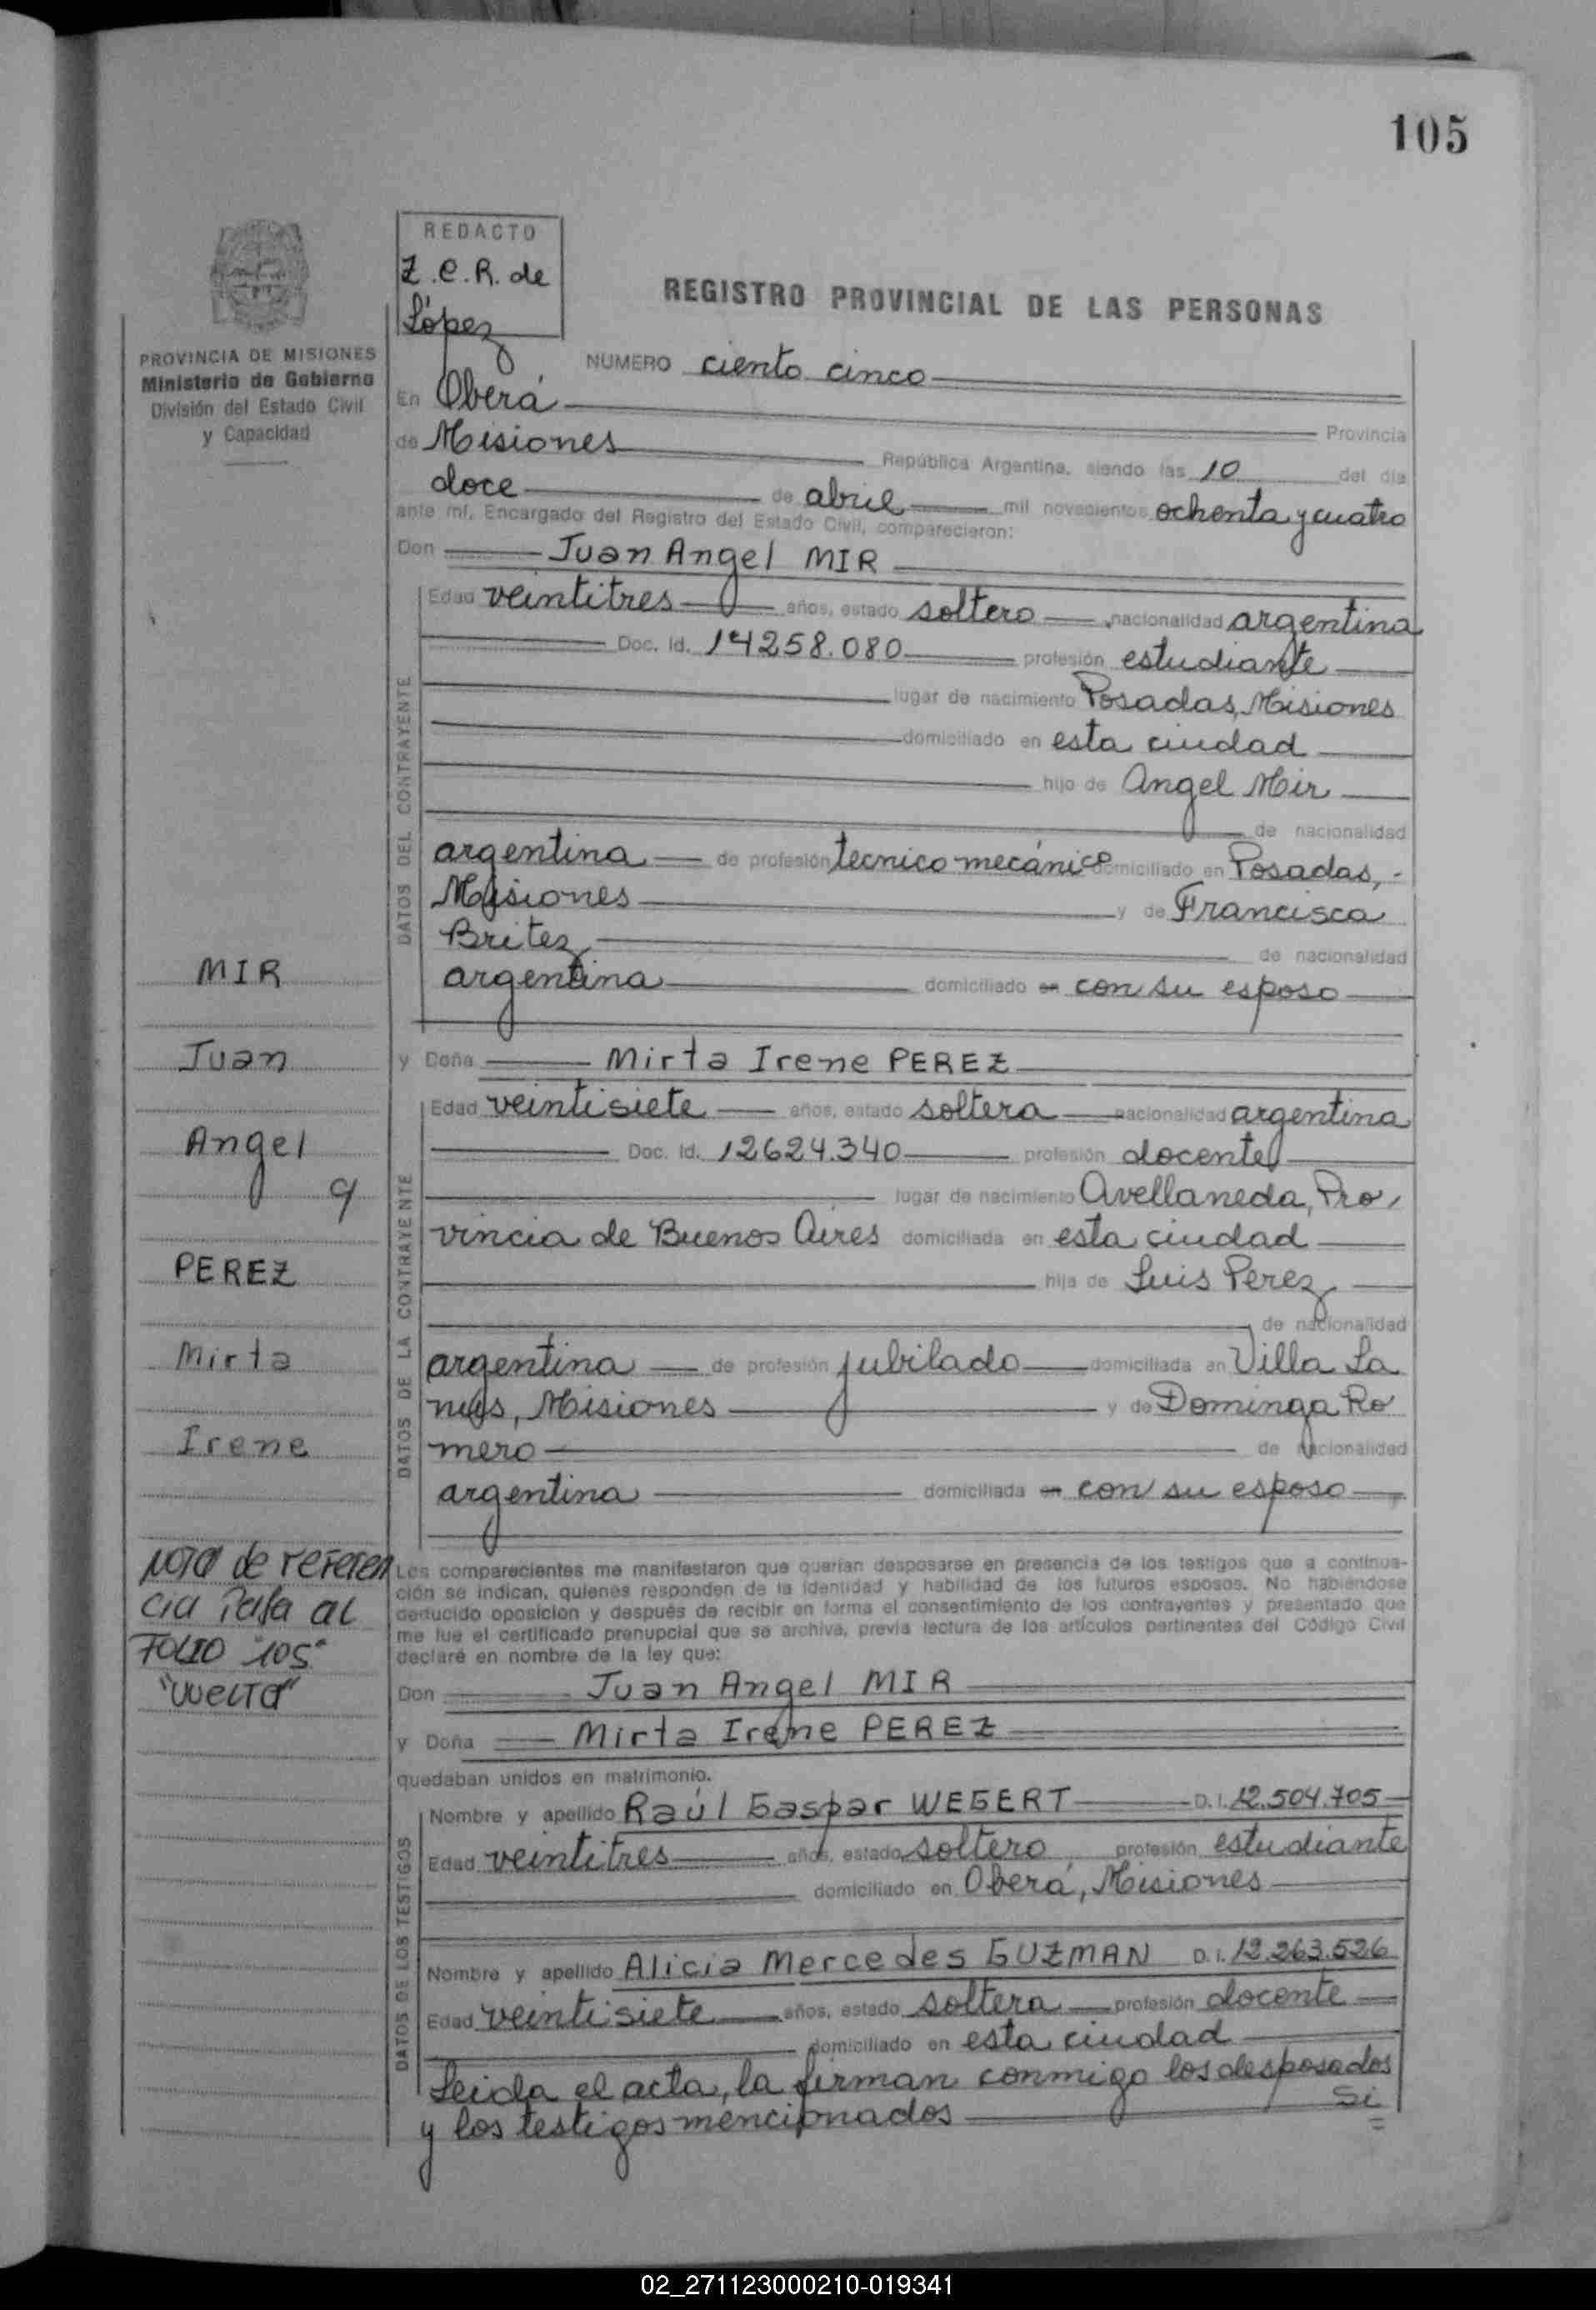 105
REDACTO
Z.C.R. de
López
REGISTRO PROVINCIAL DE LAS PERSONAS
PROVINCIA DE MISIONES
Ministerio de Gobierno
División del Estado Civil
y Capacidad
NUMERO ciento cinco
En Oberá
Provincia
de Misiones República Argentina, siendo las 10 del día
doce de abril mil novecientos ochenta y cuatro
ante mí, Encargado del Registro del Estado Civil, comparecieron:
Don Juan Angel MIR
DATOS DEL CONTRAYENTE
Edad veintitres años, estado soltero nacionalidad argentina
Doc. Id. 14258.080 profesión estudiante
lugar de nacimiento Posadas, Misiones
domiciliado en esta ciudad
hijo de Angel Mir
de nacionalidad
argentina de profesión tecnico mecánico domiciliado en Posadas,
Misiones y de Francisca
Britez de nacionalidad
argentina domiciliado en con su esposo
MIR
Juan
Angel
y
PEREZ
Mirta
Irene
y Doña Mirta Irene PEREZ
DATOS DE LA CONTRAYENTE
Edad veintisiete años, estado soltera nacionalidad argentina
Doc. Id. 12624.340 profesión docente
lugar de nacimiento Avellaneda, Pro
vincia de Buenos Aires domiciliada en esta ciudad
hija de Luis Perez
de nacionalidad
argentina de profesión jubilado domiciliada en Villa La
nus, Misiones y de Dominga Ro
mero de nacionalidad
argentina domiciliada en con su esposo
Nota de referen
cia Pasa al
FOLIO "105"
"VUELTA"
Los comparecientes me manifestaron que querían desposarse en presencia de los testigos que a continua-
ción se indican, quienes responden de la identidad y habilidad de los futuros esposos. No habiéndose
deducido oposición y después de recibir en forma el consentimiento de los contrayentes y presentado que
me fue el certificado prenupcial que se archiva, previa lectura de los artículos pertinentes del Código Civil
declaré en nombre de la ley que:
Don Juan Angel MIR
y Doña Mirta Irene PEREZ
quedaban unidos en matrimonio.
DATOS DE LOS TESTIGOS
Nombre y apellido Raúl Gaspar WEGERT D.I. 12.504.705
Edad veintitres años, estado soltero profesión estudiante
domiciliado en Oberá, Misiones
Nombre y apellido Alicia Mercedes GUZMAN D.I. 12.263.526
Edad veintisiete años, estado soltera profesión docente
domiciliado en esta ciudad
Leida el acta, la firman conmigo los desposados
y los testigos mencionados Si
02_271123000210-019341